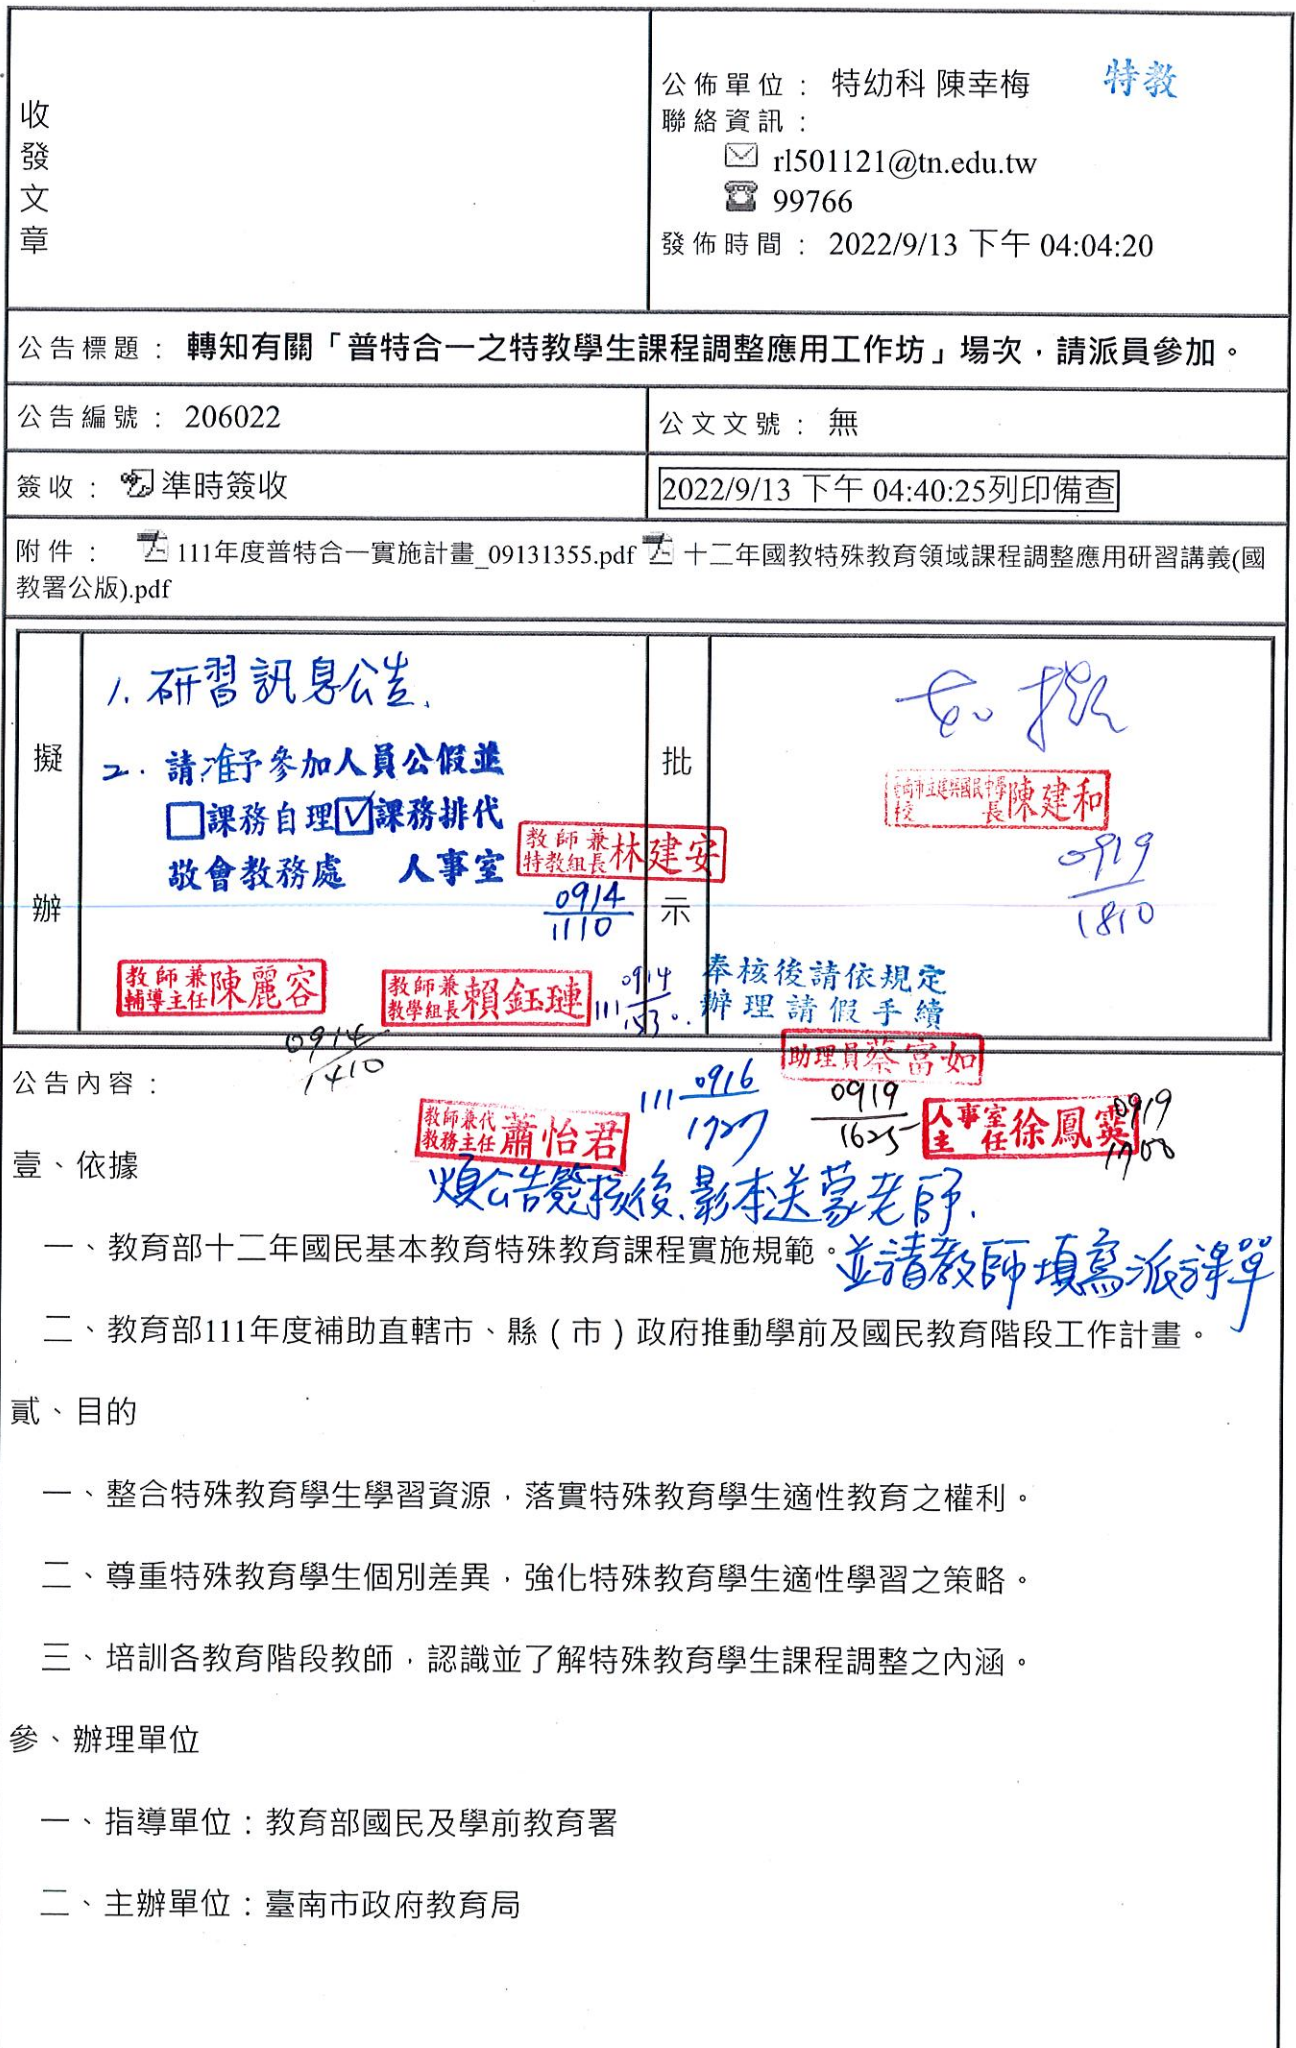 收發文章
公佈單位： 特幼科 陳幸梅
特教
聯絡資訊：
rl501121@tn.edu.tw
99766
發佈時間： 2022/9/13 下午 04:04:20
公告標題： 轉知有關「普特合一之特教學生課程調整應用工作坊」場次，請派員參加。
公告編號： 206022
公文文號： 無
簽收： 準時簽收
2022/9/13 下午 04:40:25列印備查
附件： 111年度普特合一實施計畫_09131355.pdf 十二年國教特殊教育領域課程調整應用研習講義(國
教署公版).pdf
擬辦
1. 研習訊息公告.
2. 請准予參加人員公假並
□課務自理☑課務排代
敬會教務處 人事室
教師兼特教組長林建安
0914
1110
教師兼輔導主任陳麗容
0914
1410
教師兼教學組長賴鈺璉
111 0914
1530
批示
如擬
臺南市立建興國民中學校長陳建和
0919
1810
奉核後請依規定
辦理請假手續
助理員蔡富如
0919
1625
人事室主任徐鳳霙
0919
1700
公告內容：
教師兼代教務主任蕭怡君
111 0916
1727
煩公告簽核後,影本送蒙老師.
並請教師填寫派課單
壹、依據
一、教育部十二年國民基本教育特殊教育課程實施規範。
二、教育部111年度補助直轄市、縣（市）政府推動學前及國民教育階段工作計畫。
貳、目的
一、整合特殊教育學生學習資源，落實特殊教育學生適性教育之權利。
二、尊重特殊教育學生個別差異，強化特殊教育學生適性學習之策略。
三、培訓各教育階段教師，認識並了解特殊教育學生課程調整之內涵。
參、辦理單位
一、指導單位：教育部國民及學前教育署
二、主辦單位：臺南市政府教育局